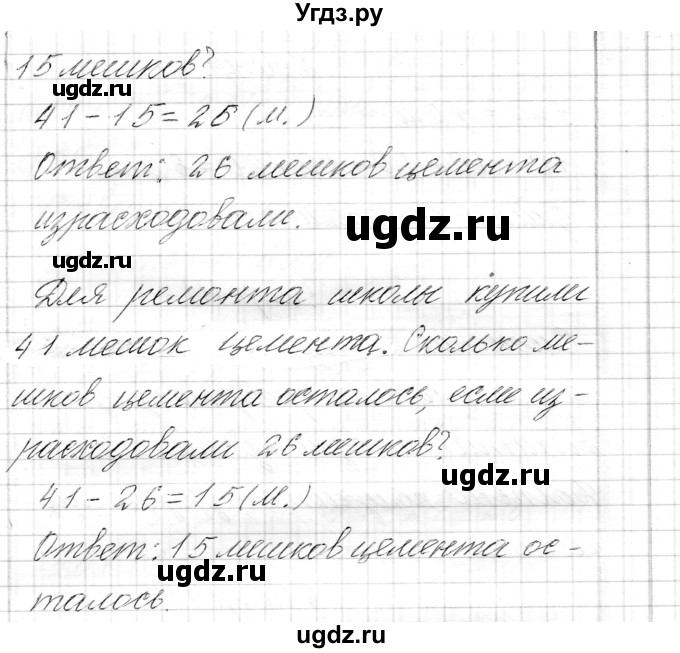 Угдз.ру
15 мешков?
ugdz.ru
41 - 15 = 26 (м.)
Ответ: 26 мешков цемента
израсходовали.
ugdz.ru
ugdz.ru
Для ремонта школы купили
ugdz.ru
41 мешок цемента. Сколько ме-
шков цемента осталось, если из-
расходовали 26 мешков?
ugdz.ru
41 - 26 = 15 (м.)
Ответ: 15 мешков цемента ос-
ugdz.ru
талось.
ugdz.ru